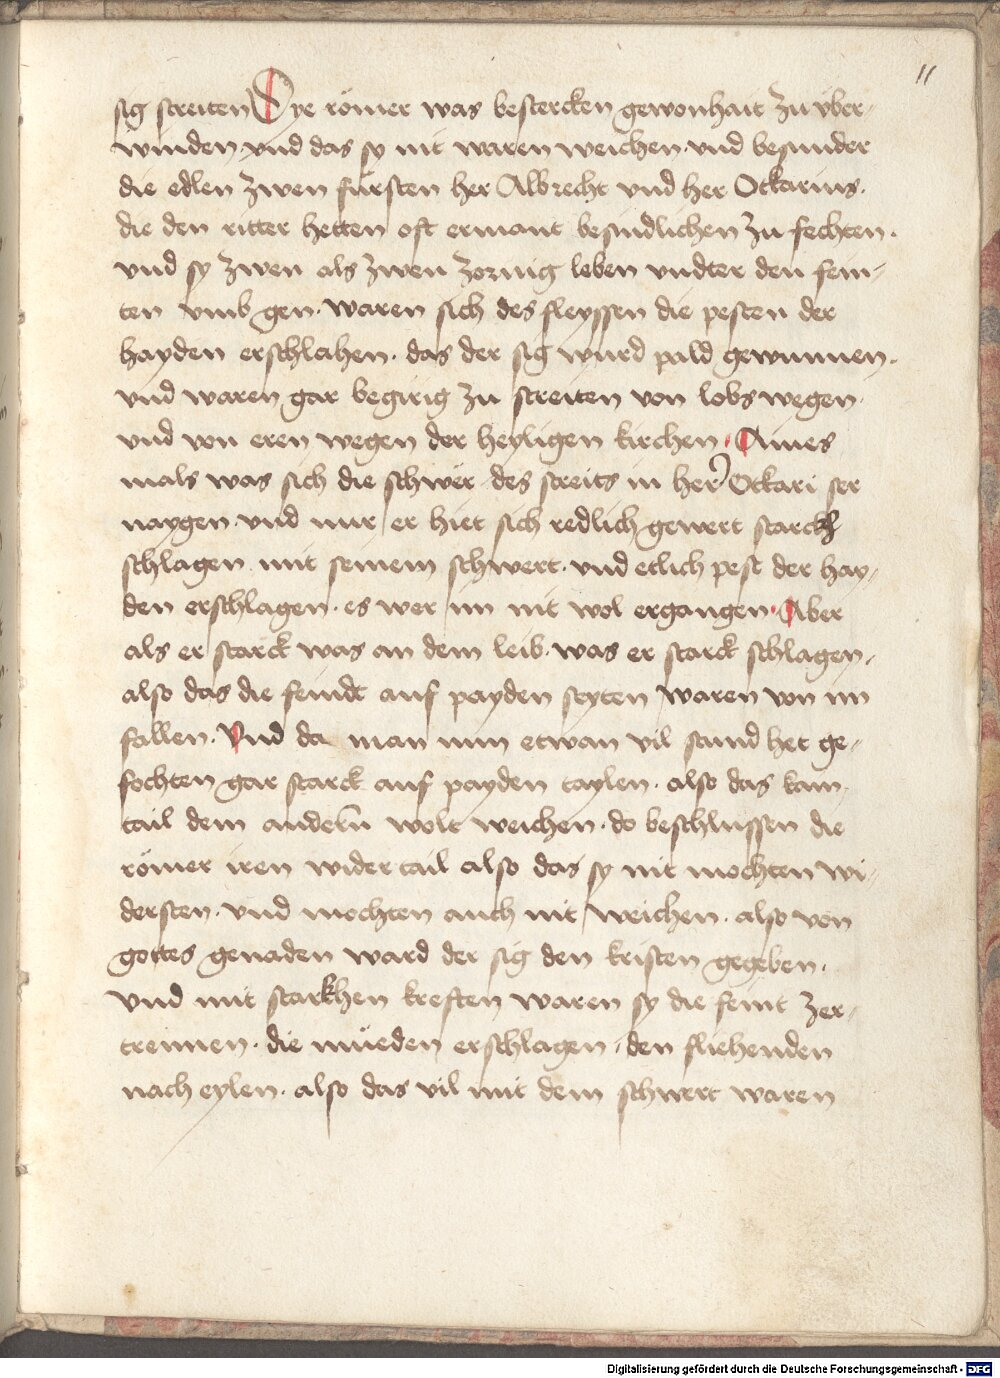 11
sig streiten Dye römer was bestercken gewonhait zu über-
winden · vnd das sy nit waren weichen · vnd besunder
die edlen zwen fürsten her Albrecht vnd her Ockarius ·
die den ritter hetten oft ermant besindlichen zu fechten ·
vnd sy zwen als zwen zornig leben vndter den fein-
ten vmb gen · waren sich des fleyssen die pesten der
hayden erschlahen · das der sig wurd pald gewunnen ·
vnd waren gar begirig zu streiten von lobs wegen ·
vnd von eren wegen der heyligen kirchen · Aines
mals was sich die schwer des streits in her Ockari ser
naygen · vnd nur er hiet sich redlich gewert starck
schlagen mit seinem schwert · vnd etlich pest der hay-
den erschlagen · es wer im nit wol ergangen · Aber
als er starck was an dem leib · was er starck schlagen ·
also das die feindt auf payden seyten waren von im
fallen · Vnd da man nun etwan vil stund het ge-
fochten gar starck auf payden taylen · also das kain
tail dem andern wolt weichen · do beschlussen die
römer iren widertail also das sy nit mochten wi-
dersten · vnd mochten auch nit weichen · also von
gottes genaden ward der sig den kristen gegeben ·
Vnd mit starkhen kreften waren sy die feint zer-
trennen · die müeden erschlagen · den fliehenden
nach eylen · also das vil mit dem schwert waren
Digitalisierung gefördert durch die Deutsche Forschungsgemeinschaft - DFG